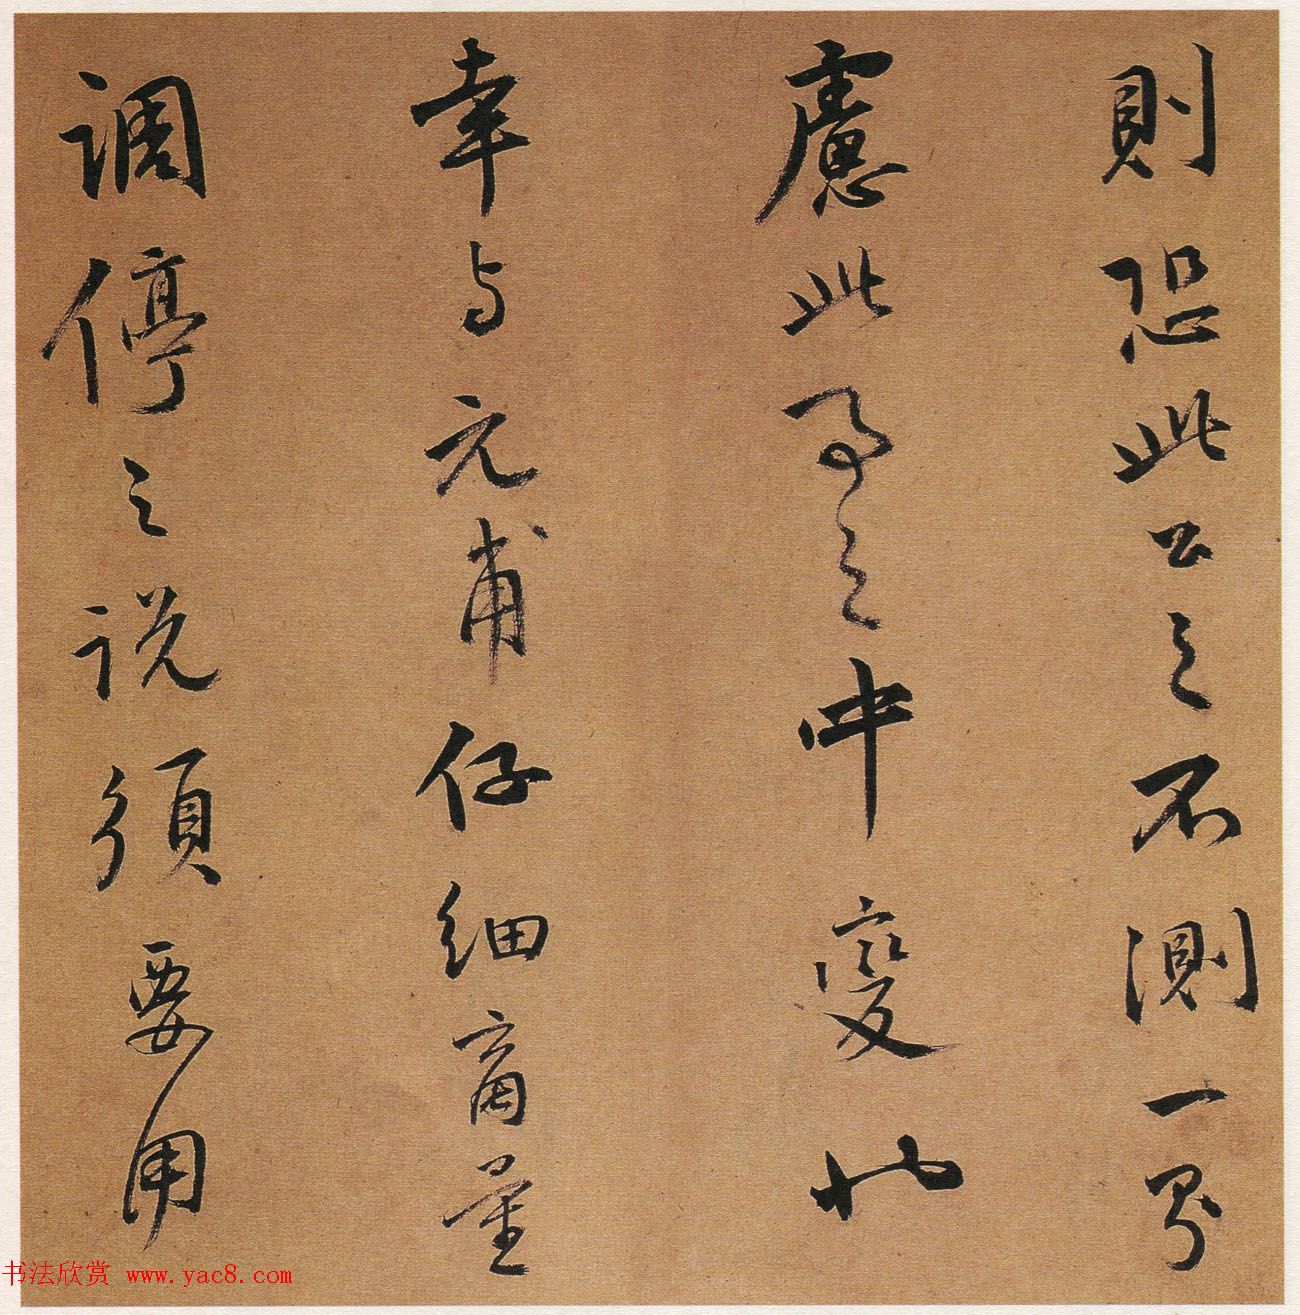 則恐此公之不測一則
慮此事之中變也
幸与元甫仔細商量
調停之説須要用
书法欣赏 www.yac8.com